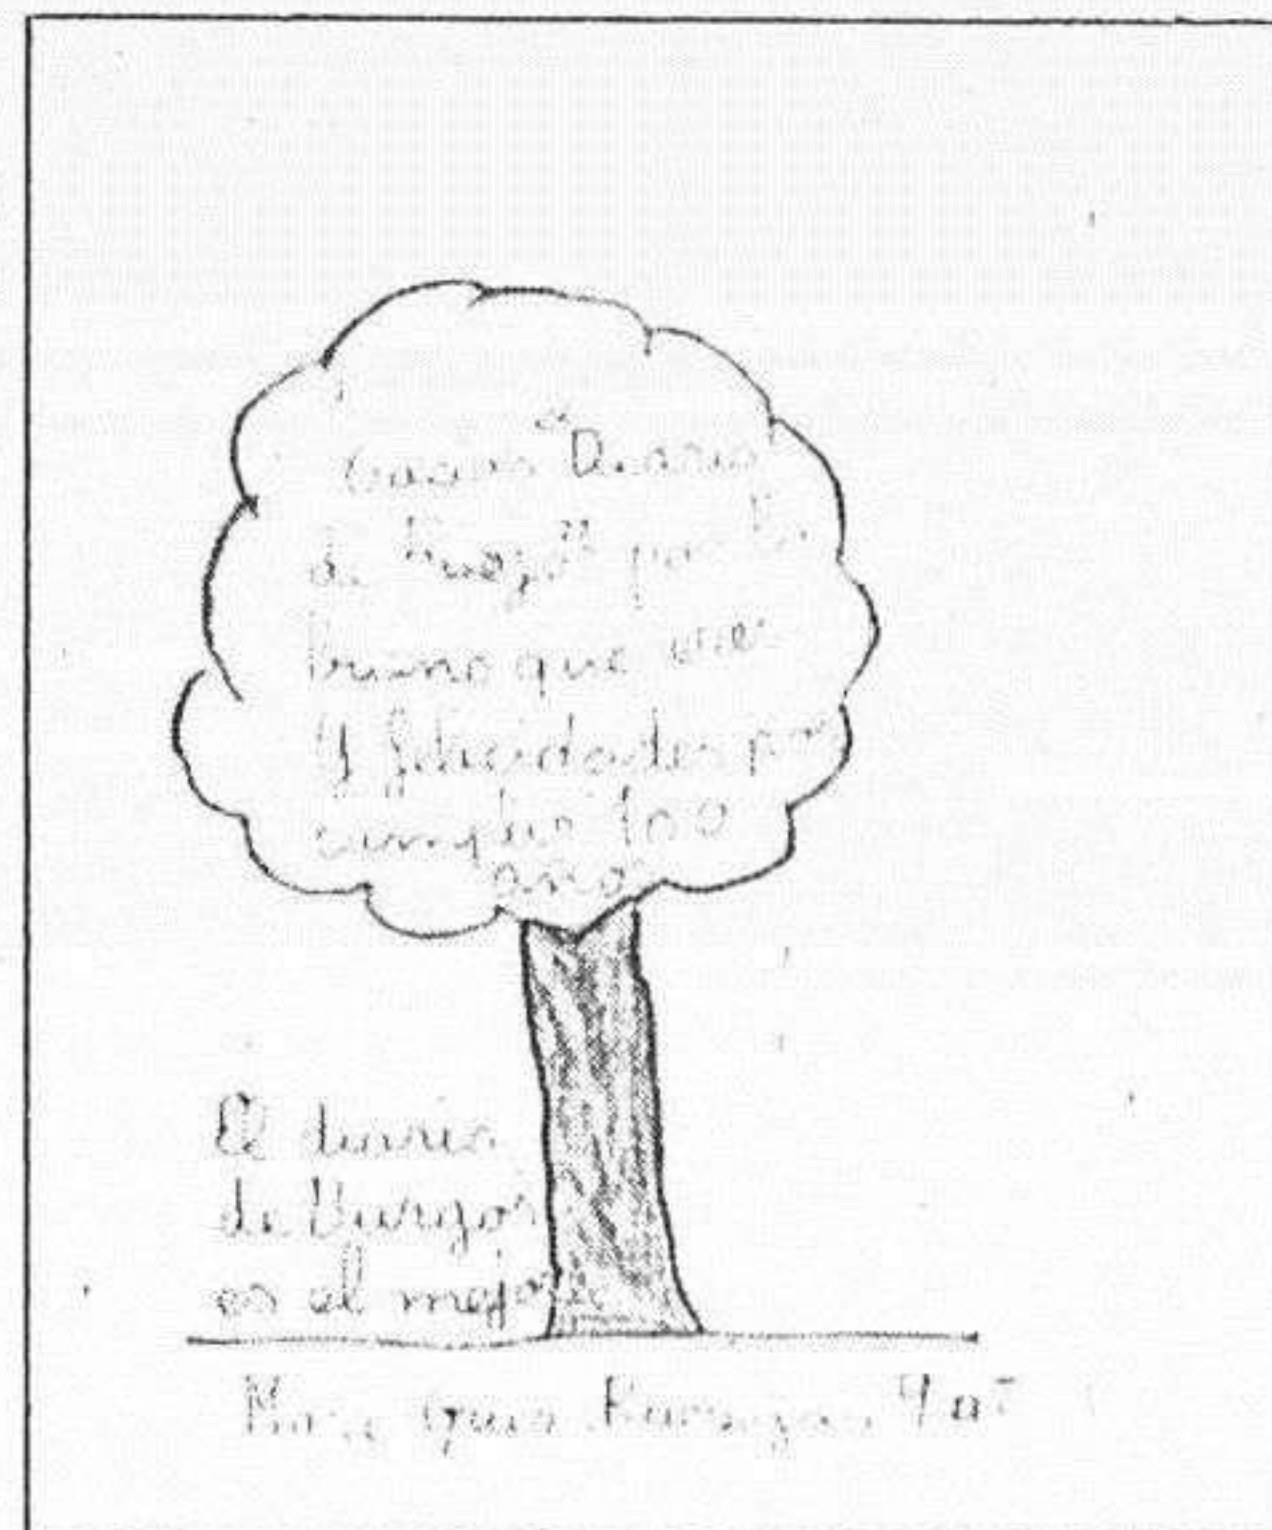 Gracias "Diario
de Burgos" por lo
bueno que eres
Y felicidades por
cumplir 100
años
El diario
de Burgos
es el mejor